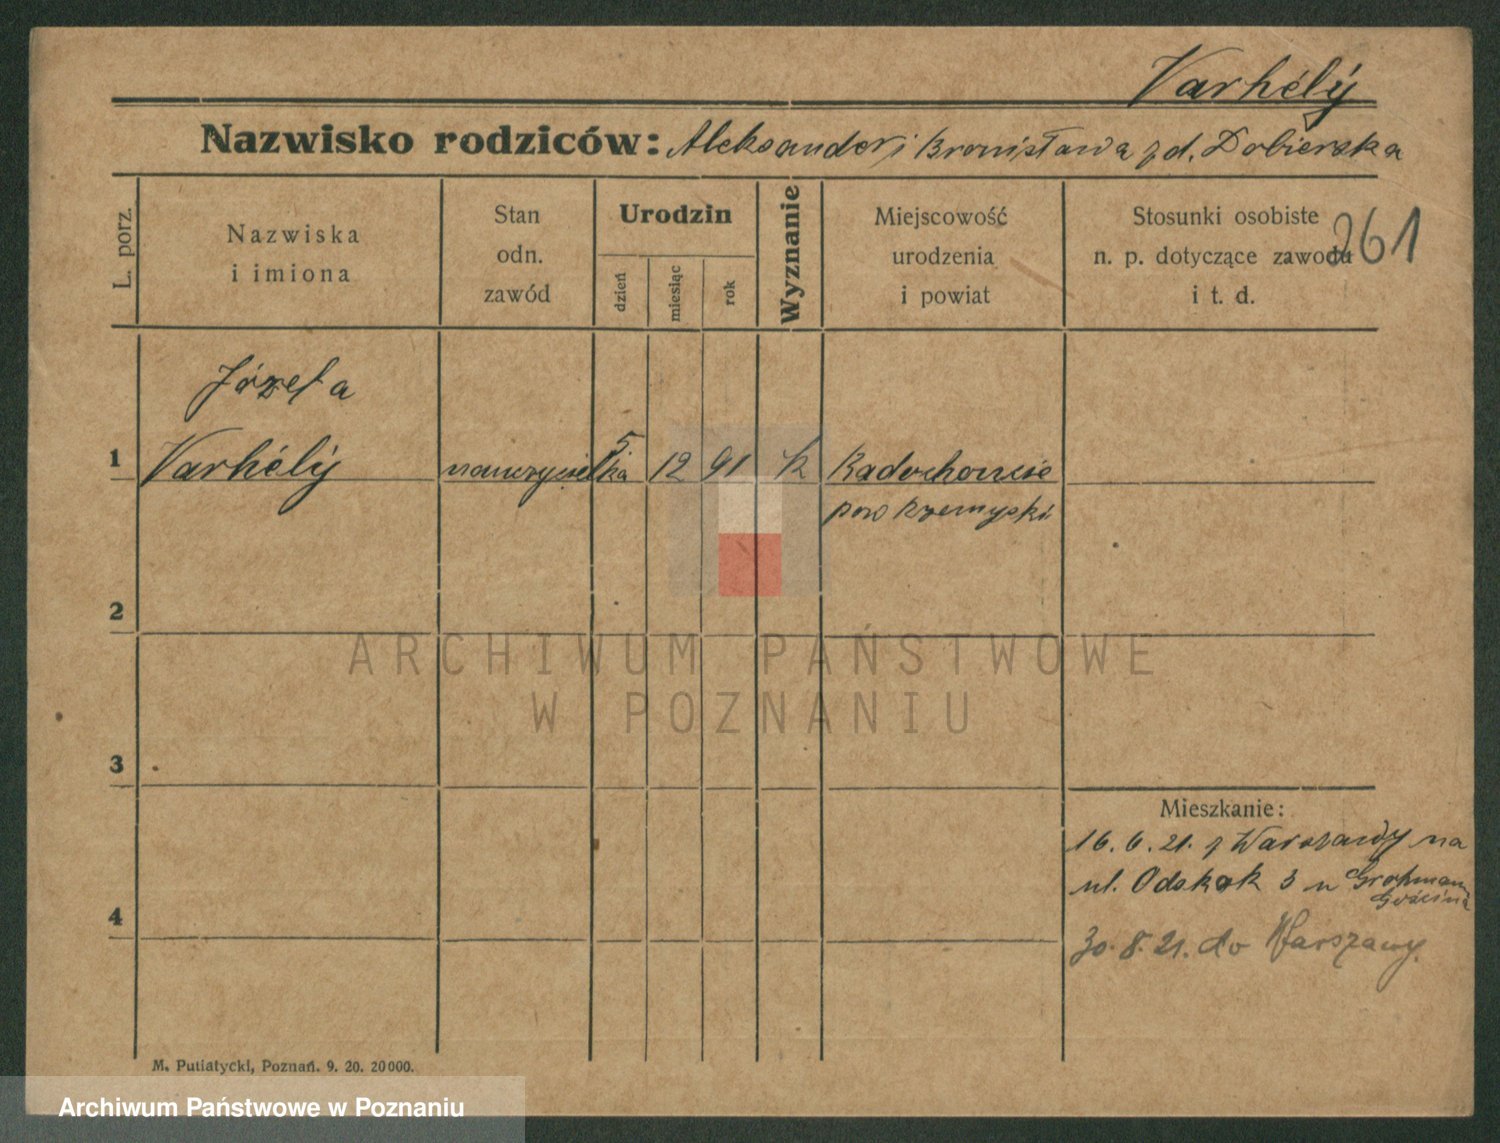 Varhély
Nazwisko rodziców: Aleksander i Bronisława z d. Dobierska
L. porz.
Nazwiska
i imiona
Stan
odn.
zawód
Urodzin
dzień
miesiąc
rok
Wyznanie
Miejscowość
urodzenia
i powiat
Stosunki osobiste
n. p. dotyczące zawodu
i t. d.
261
Józefa
1 Varhély nauczycielka 5 12 91 k Radochonce
pow
2
ARCHIWUM PAŃSTWOWE
W POZNANIU
3
Mieszkanie:
16. 6. 21. z Warszawy na
ul. Odskok 3 u
4
30. 8. 21. do Warszawy.
M. Putiatycki, Poznań. 9. 20. 20000.
Archiwum Państwowe w Poznaniu